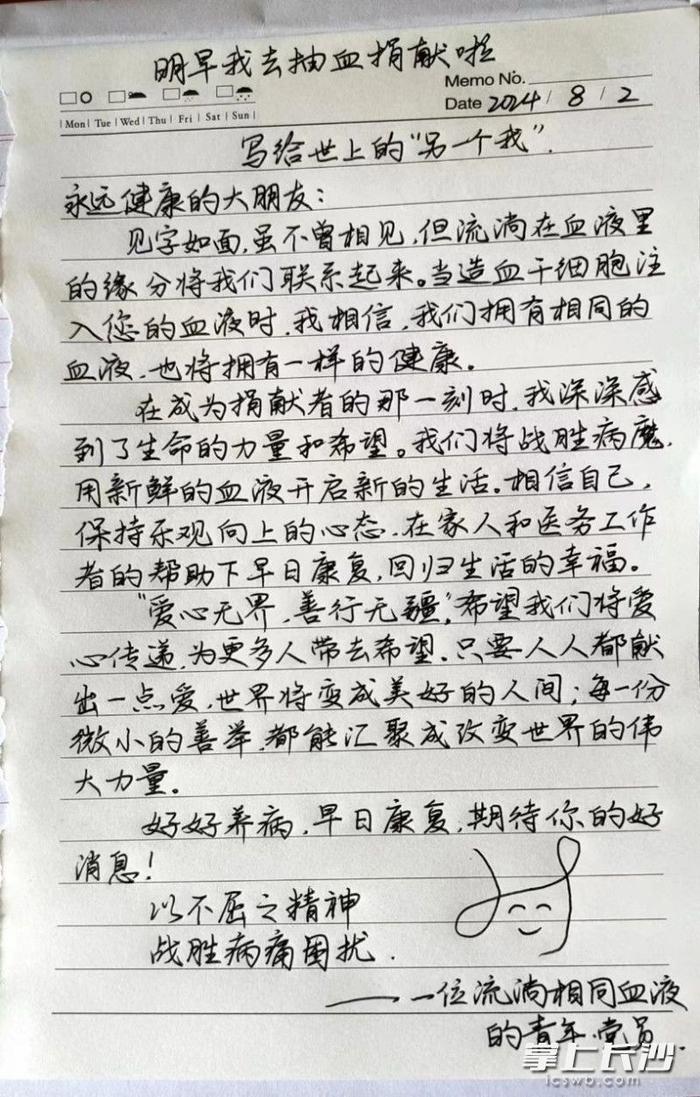 明早我去抽血捐献啦
Memo No.
Mon | Tue | Wed | Thu | Fri | Sat | Sun |
Date 2024 / 8 / 2
写给世上的“另一个我”.
永远健康的大朋友：
见字如面,虽不曾相见,但流淌在血液里
的缘分将我们联系起来。当造血干细胞注
入您的血液时,我相信,我们拥有相同的
血液,也将拥有一样的健康。
在成为捐献者的那一刻时,我深深感
到了生命的力量和希望。我们将战胜病魔,
用新鲜的血液开启新的生活。相信自己,
保持乐观向上的心态,在家人和医务工作
者的帮助下早日康复,回归生活的幸福。
“爱心无界,善行无疆”,希望我们将爱
心传递,为更多人带去希望。只要人人都献
出一点爱,世界将变成美好的人间；每一份
微小的善举,都能汇聚成改变世界的伟
大力量。
好好养病,早日康复,期待你的好
消息!
以不屈之精神
战胜病痛困扰.
——一位流淌相同血液
的青年党员.
掌上长沙
icswb.com